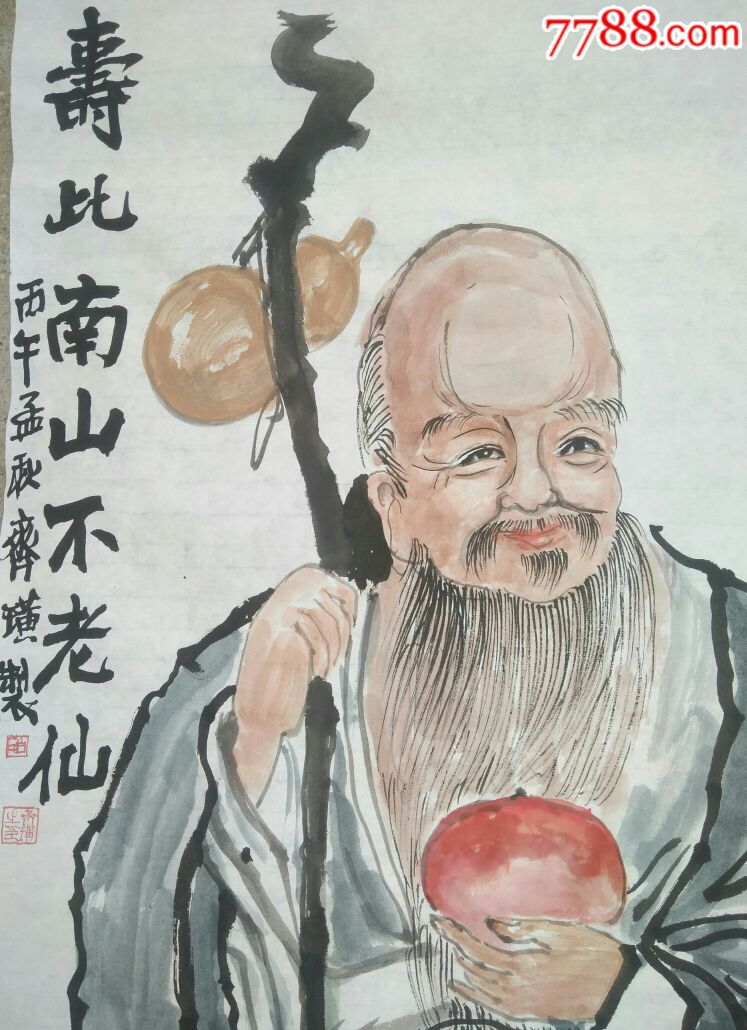 7788.com
壽比南山不老仙
丙午孟秋齊璜製